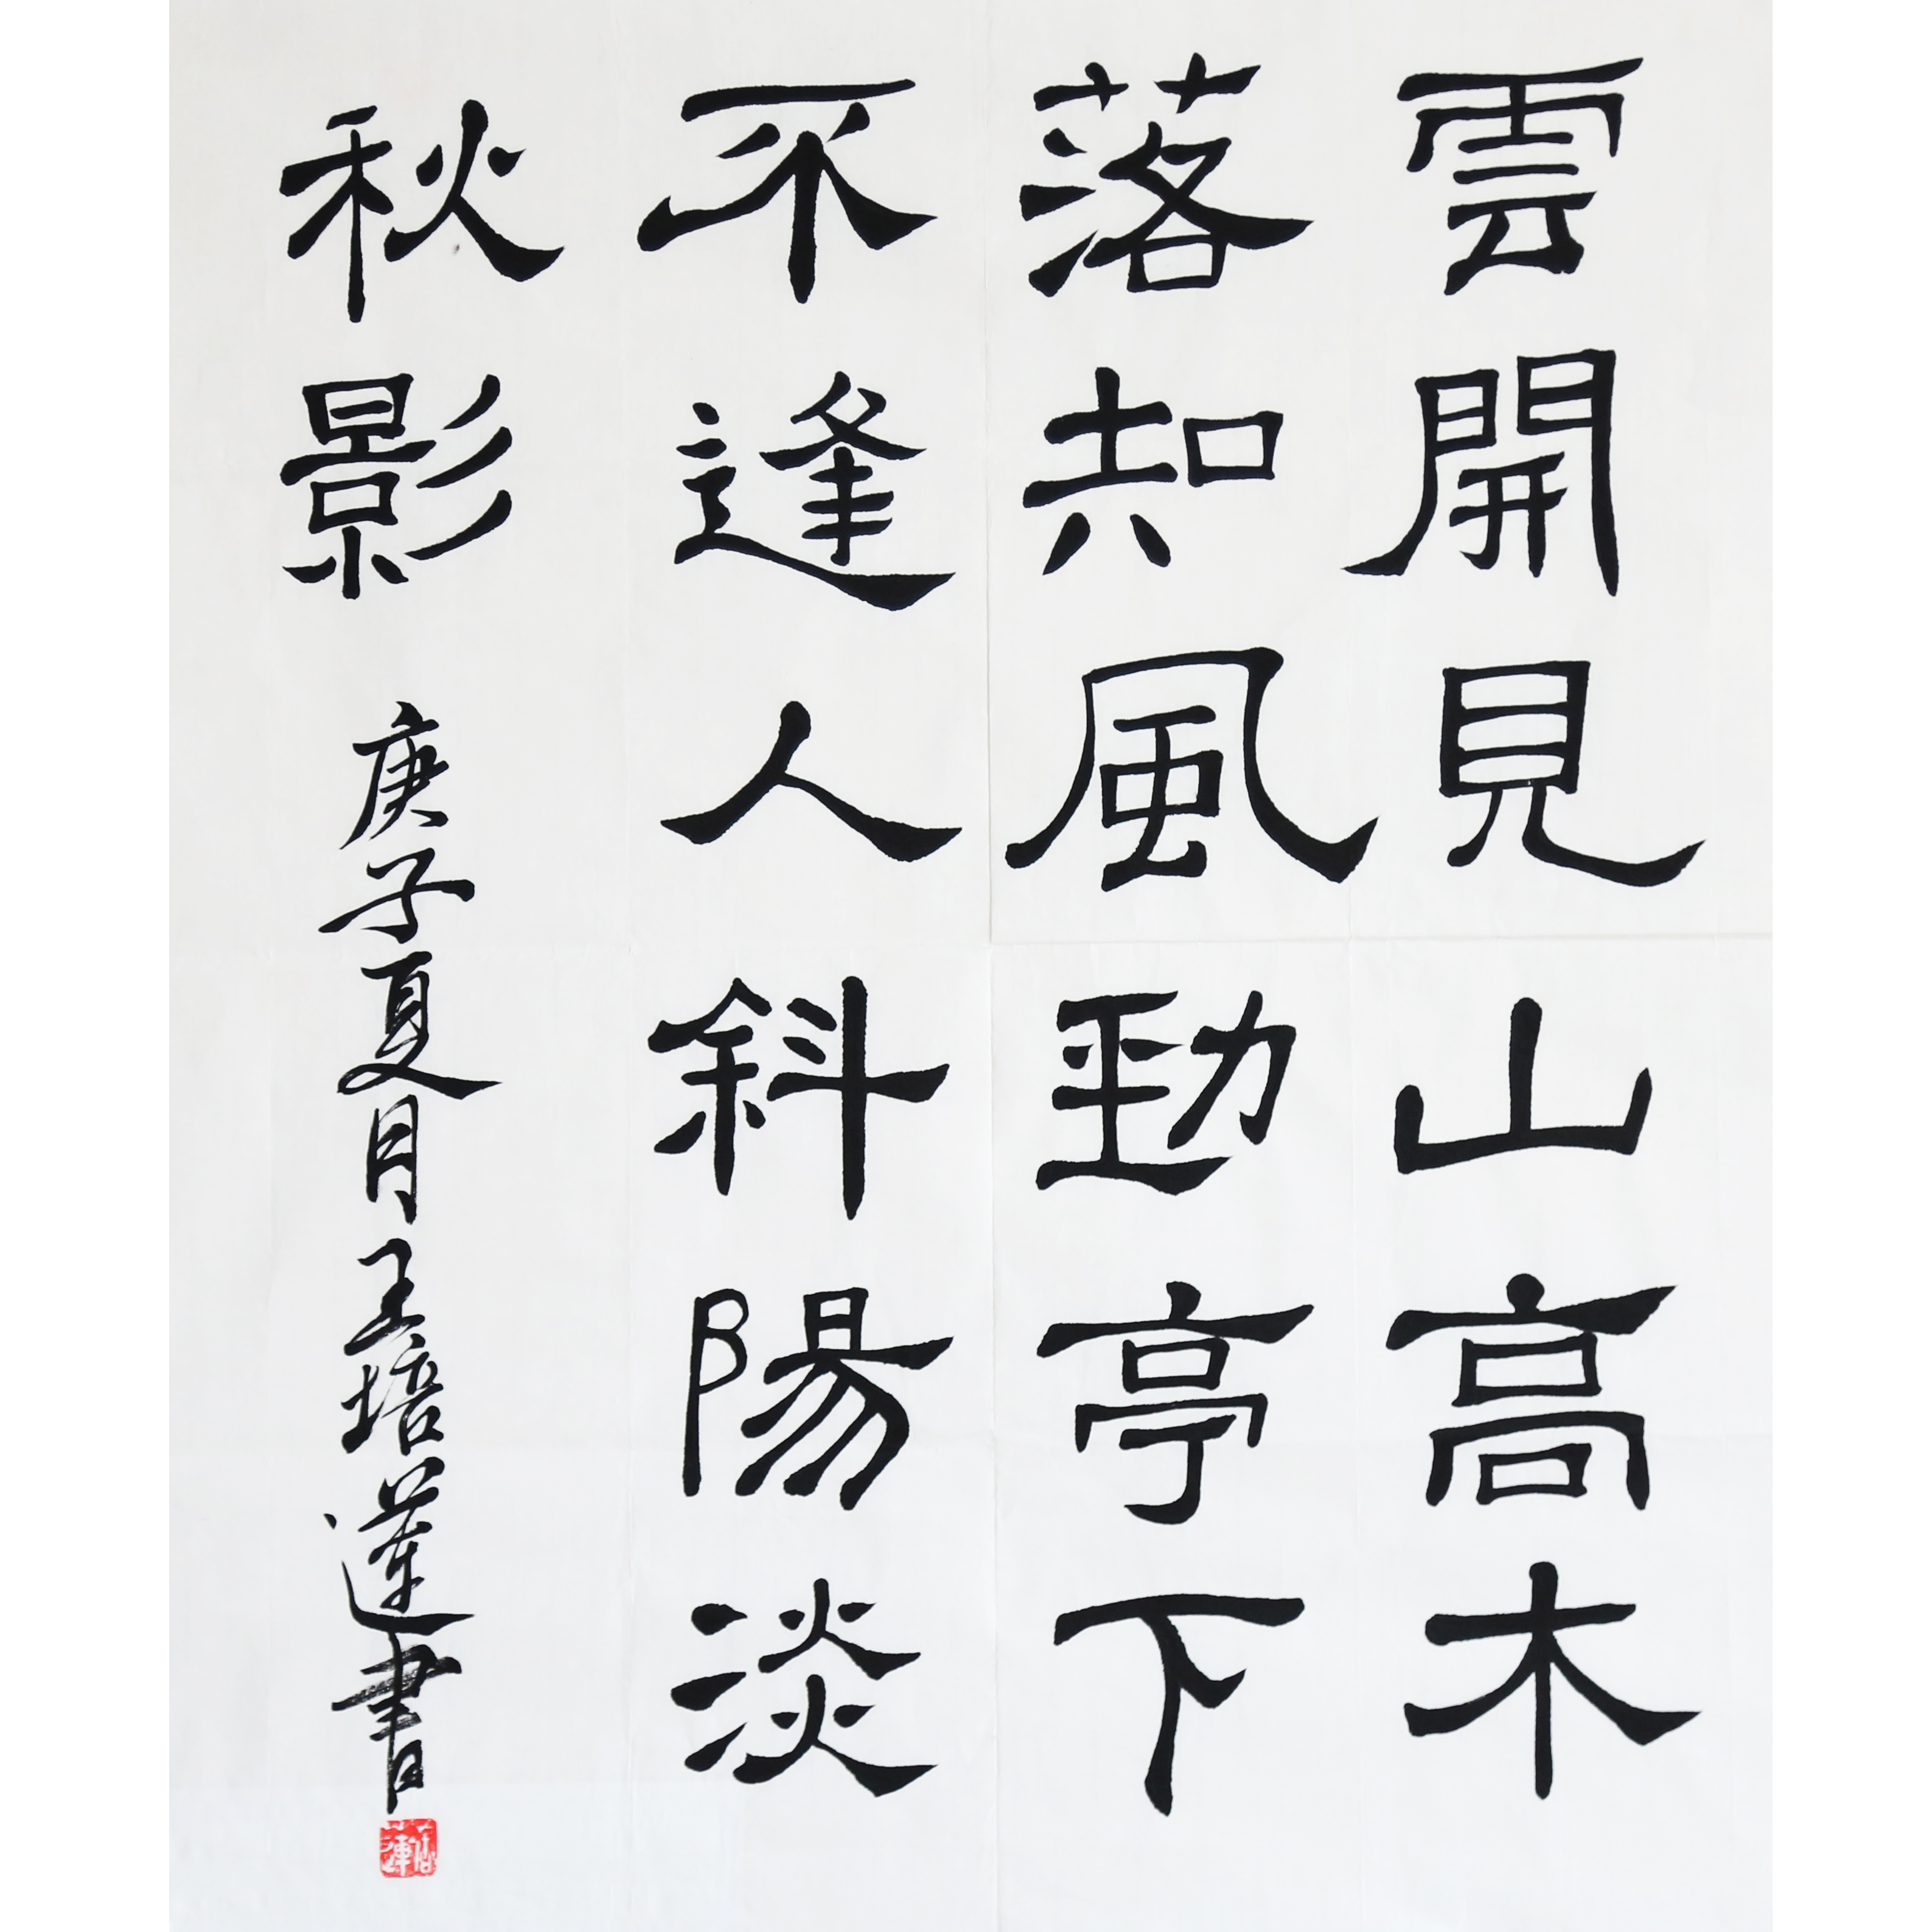 雲開見山高木
落知風勁亭下
不逢人斜陽淡
秋影 庚子夏月王培蓮書
培蓮